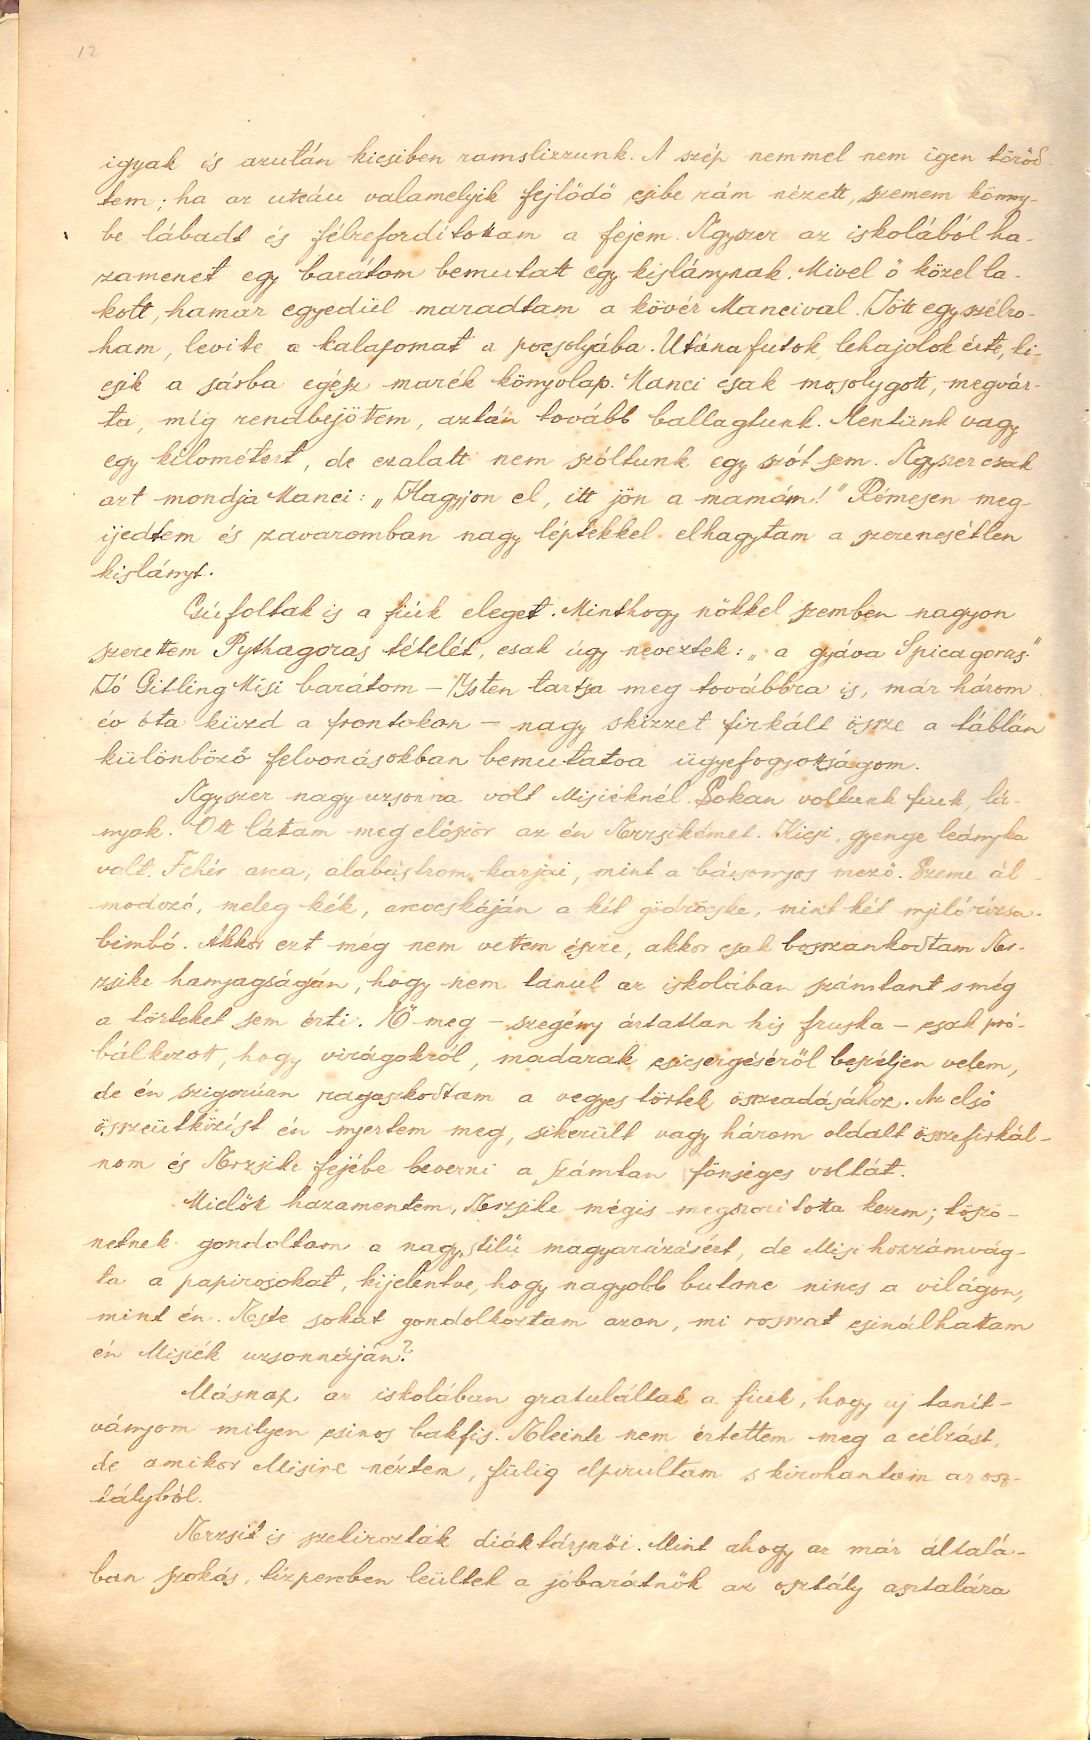 12
igyak és azután kicsiben ramslizzunk. A szép nemmel nem igen törőd-
tem; ha az utcán valamelyik fejlődő csibe rám nézett, szemem könny-
be lábadt és félrefordítottam a fejem. Egyszer az iskolából ha-
zamenet egy barátom bemutatt egy kislánynak. Mivel ő közel la-
kott, hamar egyedül maradtam a kövér Mancival. Jött egy szélro-
ham, levitte a kalapomat a pocsolyába. Utána futok, lehajolok érte, ki-
esik a sárba egész marék könyolap. Manci csak mosolygott, megvár-
ta, míg rendbejöttem, aztán tovább ballagtunk. Mentünk vagy
egy kilométert, de ezalatt nem szóltunk egy szót sem. Egyszer csak
azt mondja Manci: „Hagyjon el, itt jön a mamám!" Rémesen meg-
ijedtem és zavaromban nagy léptekkel elhagytam a szerencsétlen
kislányt.
Csúfoltak is a fiúk eleget. Minthogy nőkkel szemben nagyon
szerettem Pythagoras tételét, csak úgy neveztek: „a gyáva Spicagoras"
Jó Gitling Misi barátom – Isten tartsa meg továbbra is, már három
év óta küzd a frontokon – nagy skizzet firkált össze a táblán
különböző felvonásokban bemutatva ügyefogyottságom.
Egyszer nagy uzsonna volt Misiéknél. Sokan voltunk fiuk, lá-
nyok. Ott láttam meg először az én Erzsikémet. Kicsi, gyenge leányka
volt. Fehér arca, alabástrom karjai, mint a bársonyos mező. Szeme ál-
modozó, meleg kék, arcocskáján a két gödröcske, mint két nyiló rózsa-
bimbó. Akkor ezt még nem vettem észre, akkor csak bosszankodtam Er-
zsike hanyagságán, hogy nem tanul az iskolában számtant s még
a törteket sem érti. Ő meg – szegény ártatlan kis fruska – csak pró-
bálkozott, hogy virágokról, madarak csicsergéséről beszéljen velem,
de én szigorúan ragaszkodtam a vegyes törtek összeadásához. Az első
összeütközést én nyertem meg, sikerült vagy három oldalt összefirkál-
nom és Erzsike fejébe beverni a számtan fönséges voltát.
Mielőtt hazamentem, Erzsike mégis megszorította kezem; köszö-
netnek gondoltam a nagystilű magyarázásért, de Misi hozzámvág-
ta a papirosokat, kijelentve, hogy nagyobb butanc nincs a világon,
mint én. Este sokat gondolkoztam azon, mi rosszat csinálhattam
én Misiék uzsonnáján?
Másnap az iskolában gratuláltak a fiuk, hogy uj tanít-
ványom milyen csinos bakfis. Eleinte nem értettem meg a célzást,
de amikor Misire néztem, fülig elpirultam s kirohantam az osz-
tályból.
Erzsit is szekirozták diáktársnői. Mint ahogy az már általá-
ban szokás, tízpercben leültek a jóbarátnők az osztály asztalára